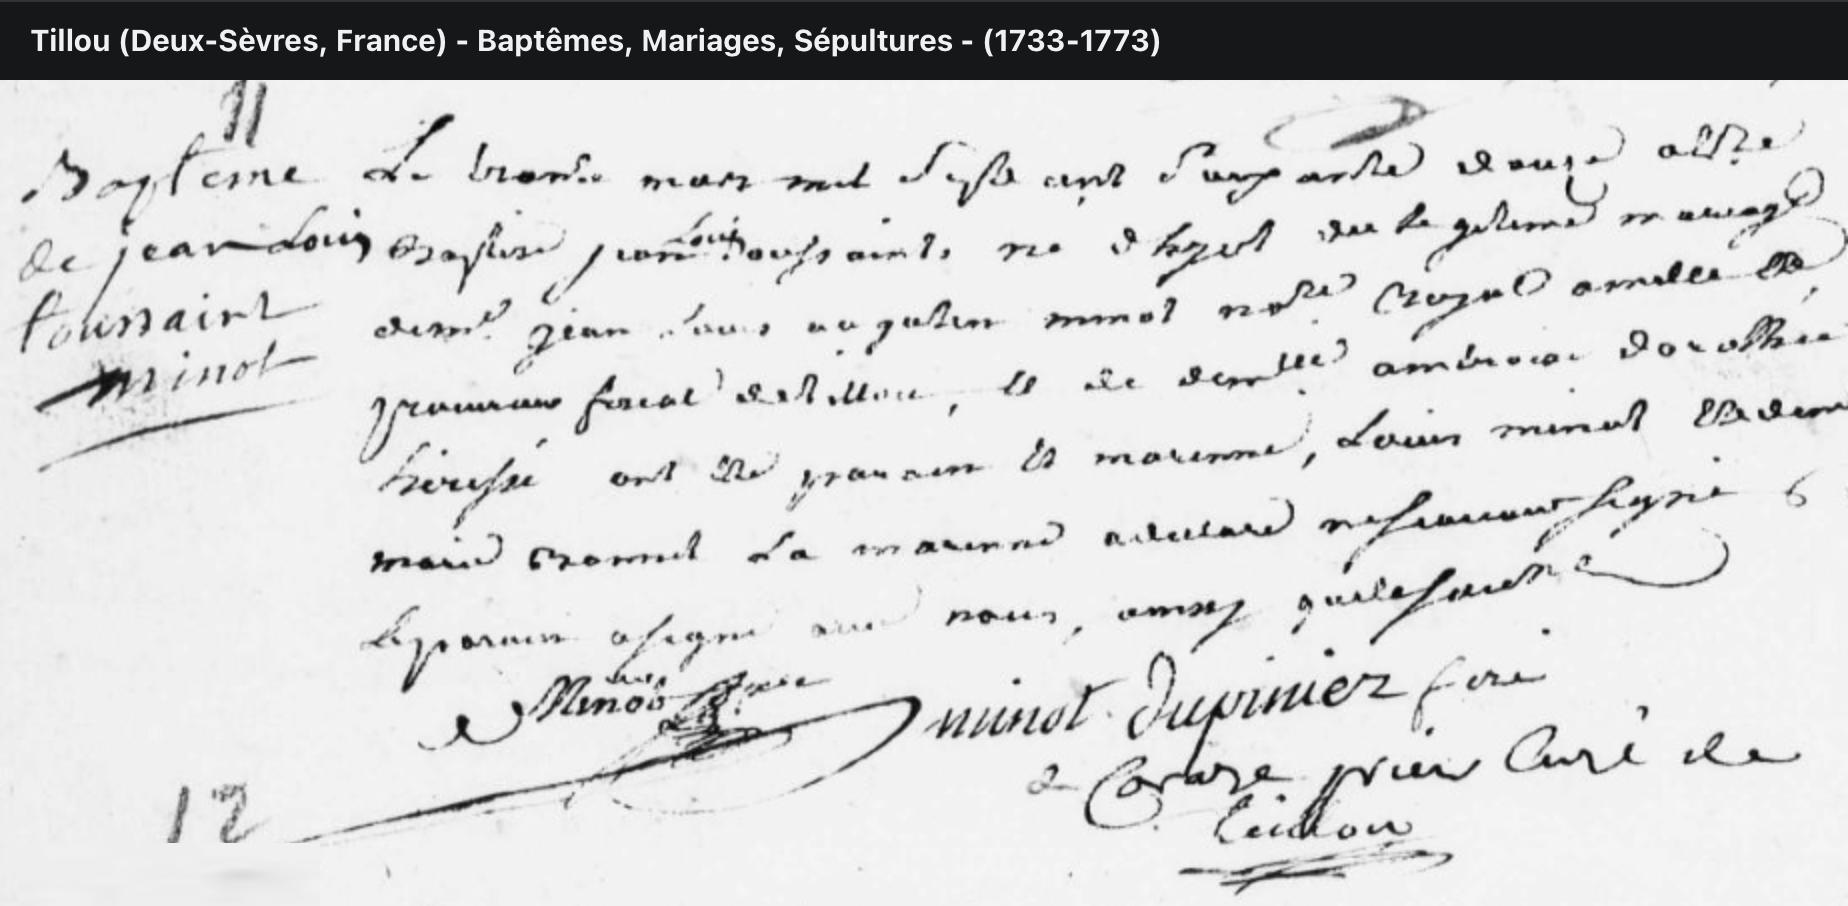 Tillou (Deux-Sèvres, France) - Baptêmes, Mariages, Sépultures - (1733-1773)
11
Bapteme
de jean Louis
toussaint
minot
Le trente mars mil sept cent soixante douze a été
Baptisé jean Louis toussaint, né d'hyer du legitime mariage
de mr. jean Louis augustin minot notre Royal
procureur fiscal de tillou, et de demlle ambroise dorothée
ont été parain et marenne, Louis minot et dem
marie La marenne a declaré ne scavoir signé
Le parain a signé avec nous,
Minot
minot Dupinier
prieur Curé de
tillou
12